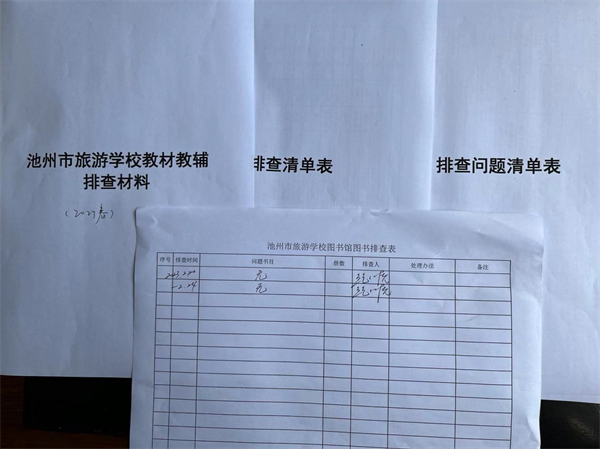 池州市旅游学校教材教辅
排查材料
(2023春)
排查清单表
排查问题清单表
池州市旅游学校图书馆图书排查表
序号 排查时间 问题书目 册数 排查人 处理办法 备注
无
无